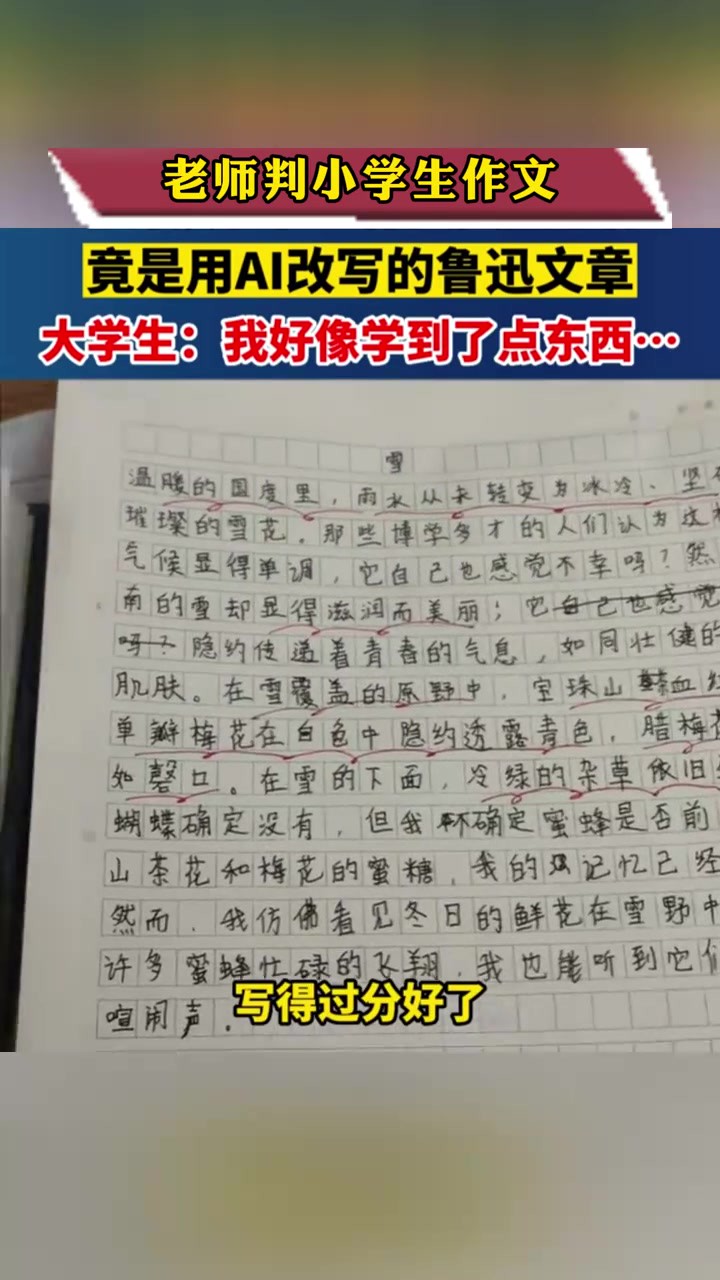 老师判小学生作文
竟是用AI改写的鲁迅文章
大学生：我好像学到了点东西…
雪
温暖的国度里，雨水从未转变为冰冷、坚
璀璨的雪花。那些博学多才的人们认为这
气候显得单调，它自己也感觉不幸吗？然
南的雪却显得滋润而美丽；它自己也感觉
吗？隐约传递着青春的气息，如同壮健的
肌肤。在雪覆盖的原野中，宝珠山茶血红
单瓣梅花在白色中隐约透露青色，腊梅花
如磬口。在雪的下面，冷绿的杂草依旧
蝴蝶确定没有，但我不确定蜜蜂是否前
山茶花和梅花的蜜糖，我的记忆已经
然而，我仿佛看见冬日的鲜花在雪野中
许多蜜蜂忙碌的飞翔，我也能听到它们
喧闹声。
写得过分好了